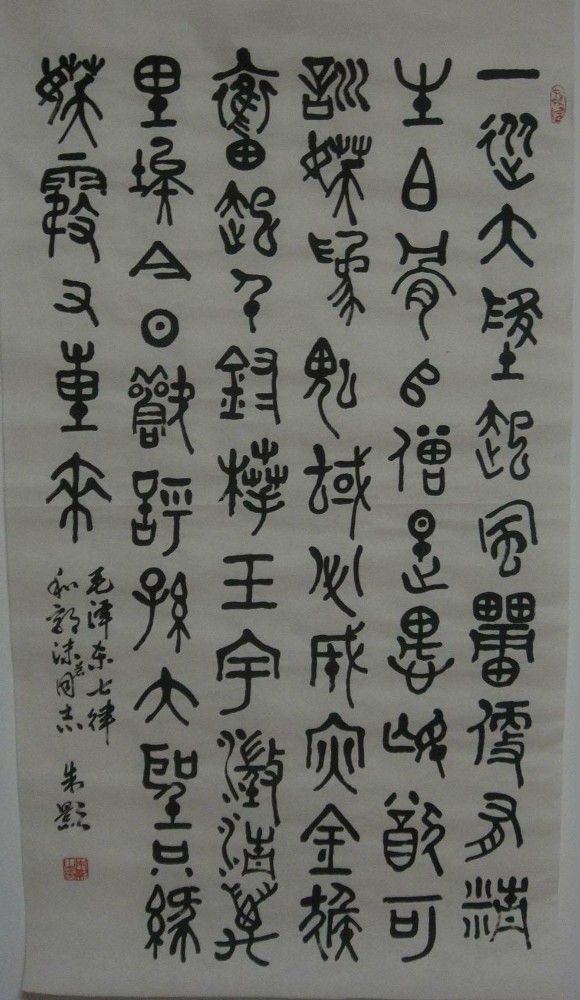 一從大地起風靁便有精
生白骨堆僧是愚氓猶可
訓妖為鬼蜮必成災金猴
奮起千鈞棒玉宇澂清萬
里埃今日歡呼孫大聖只緣
妖霧又重來
毛泽东七律
和郭沫若同志 朱